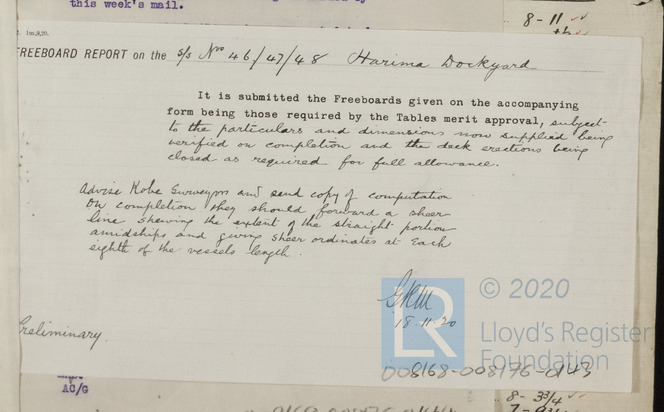 this week's mail.
8-11
1m,9,20.
FREEBOARD REPORT on the s/s Nos 46/47/48 Harima Dockyard
It is submitted the Freeboards given on the accompanying
form being those required by the Tables merit approval, subject
to the particulars and dimensions now supplied being
verified on completion and the deck erections being
closed as required for full allowance.
Advise Kobe Surveyors and send copy of computation
On completion they should forward a sheer
line shewing the extent of the straight portion
amidships and giving sheer ordinates at Each
eighth of the vessels length.
18.11.20
Preliminary.
LR
© 2020
Lloyd's Register
Foundation
008168-008176-0143
AC/G
8-3¾